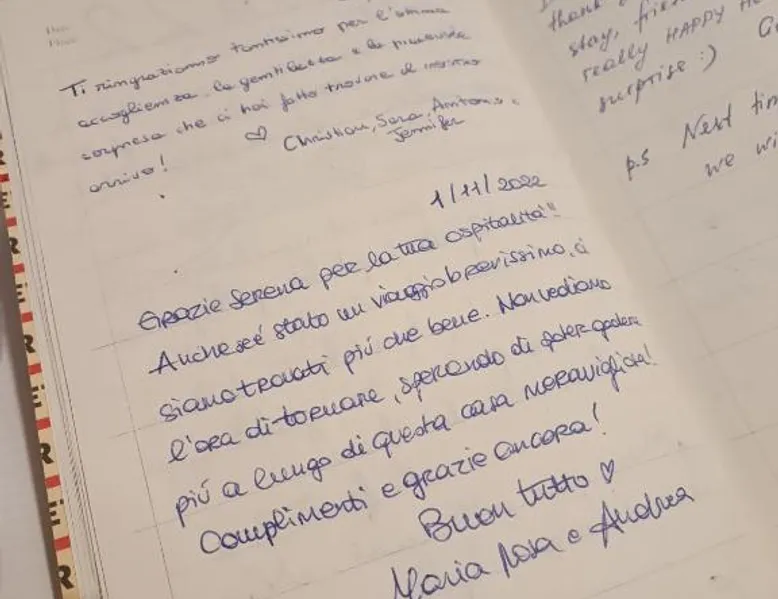 Ti ringraziamo tantissimo per l'ottima
accoglienza, la gentilezza e la piacevole
sorpresa che ci hai fatto trovare al nostro
arrivo!
♡ Christian, Sara, Antonio e
Jennifer
1/11/2022
Grazie Serena per la tua ospitalità!!
Anche se è stato un viaggio brevissimo, ci
siamo trovati più che bene. Non vediamo
l'ora di tornare, sperando di poter godere
più a lungo di questa casa meravigliosa!
Complimenti e grazie ancora!
Buon tutto ♡
Maria Rosa e Andrea
thank
stay, frie
really HAPPY H
surprise :) G
p.s Next tim
we wi